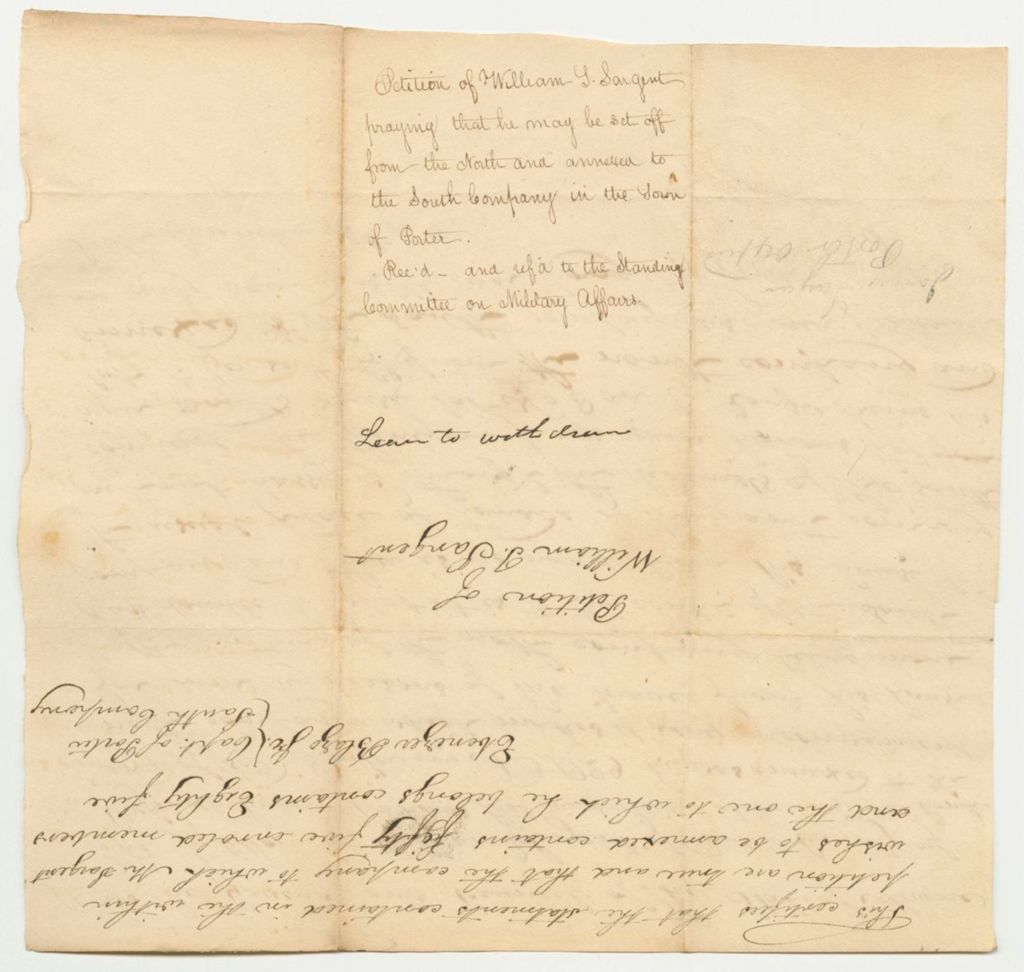 Petition of William T. Sargent
praying that he may be set off
from the North and annexed to
the South Company in the Town
of Porter.
Rec'd - and ref'd to the Standing
Committee on Military Affairs.
Leave to withdraw
Petition of
William T. Sargent
This certifies that the statments contained in the within
petition are true and that the company to which Mr Sargent
wishes to be annexed contains fifty five enroled members
and the one to which he belongs contains Eighty five
Ebenezer Blazo Jr. } Capt. of Porter
{ South Company